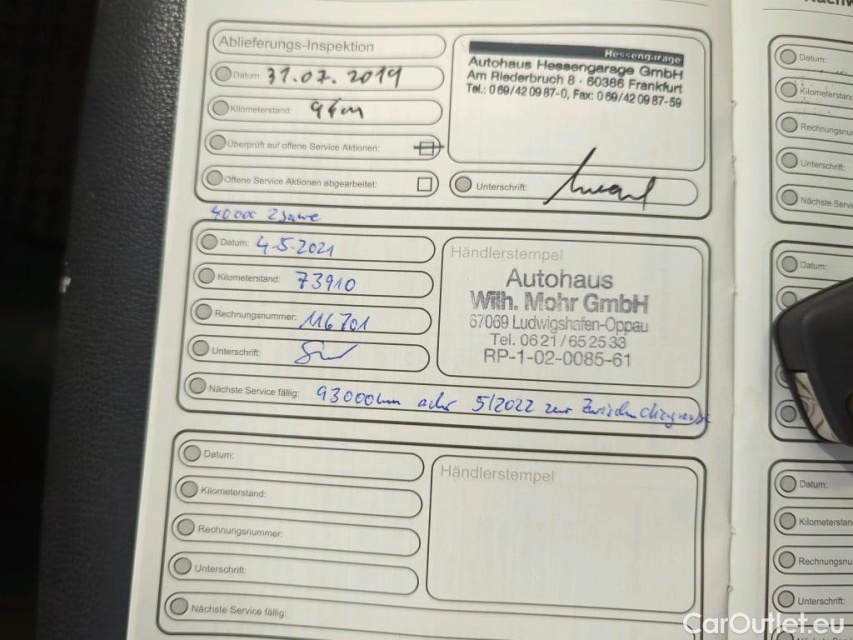 Ablieferungs-Inspektion
Datum: 31.07.2019
Kilometerstand: 9 km
Überprüft auf offene Service Aktionen:
Offene Service Aktionen abgearbeitet:
Hessengarage
Autohaus Hessengarage GmbH
Am Riederbruch 8 · 60386 Frankfurt
Tel.: 069/42 09 87-0, Fax: 069/42 09 87-59
Unterschrift:
40000 2 Jahre
Datum: 4-5-2021
Kilometerstand: 73910
Rechnungsnummer: 116701
Unterschrift:
Nächste Service fällig: 93000km oder 5/2022 zur
Händlerstempel
Autohaus
Wilh. Mohr GmbH
67069 Ludwigshafen-Oppau
Tel. 0621/652533
RP-1-02-0085-61
Datum:
Kilometerstand:
Rechnungsnummer:
Unterschrift:
Nächste Service fällig:
Händlerstempel
Datum:
Kilometerstand
Rechnungsnu
Unterschrift:
Nächste Servi
Datum:
Datum:
Kilometerstan
Rechnungsnu
Unterschrift:
CarOutlet.eu